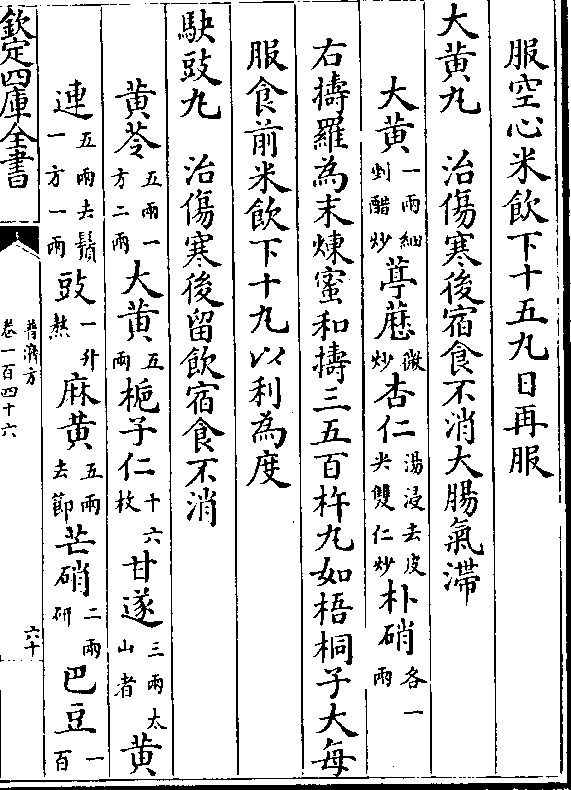 服空心米飲下十五丸日再服
大黄丸　治傷寒後宿食不消大腸氣滯
大黄一兩細剉醋炒葶藶微炒杏仁湯浸去皮尖雙仁炒朴硝各一兩
右擣羅為末煉蜜和擣三五百杵丸如梧桐子大每
服食前米飲下十丸以利為度
駃豉丸　治傷寒後留飲宿食不消
黄芩五兩一方二兩大黄五兩梔子仁十六枚甘遂三兩太山者黄
連五兩去鬚一方一兩豉一升熬麻黄五兩去節芒硝二兩研巴豆一百
欽定四庫全書
普濟方
卷一百四十六
六十